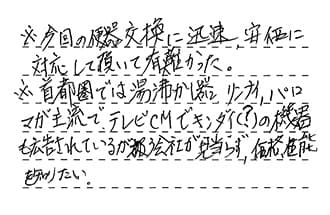 ※今回の便器交換に迅速,安価に
対応して頂いて有難かった。
※首都圏では湯沸かし器は リンナイ,パロ
マが主流で、テレビCMでキンダイ(?)の機器
も広告されているが扱う会社が見当らず,価格,性能
も知りたい。